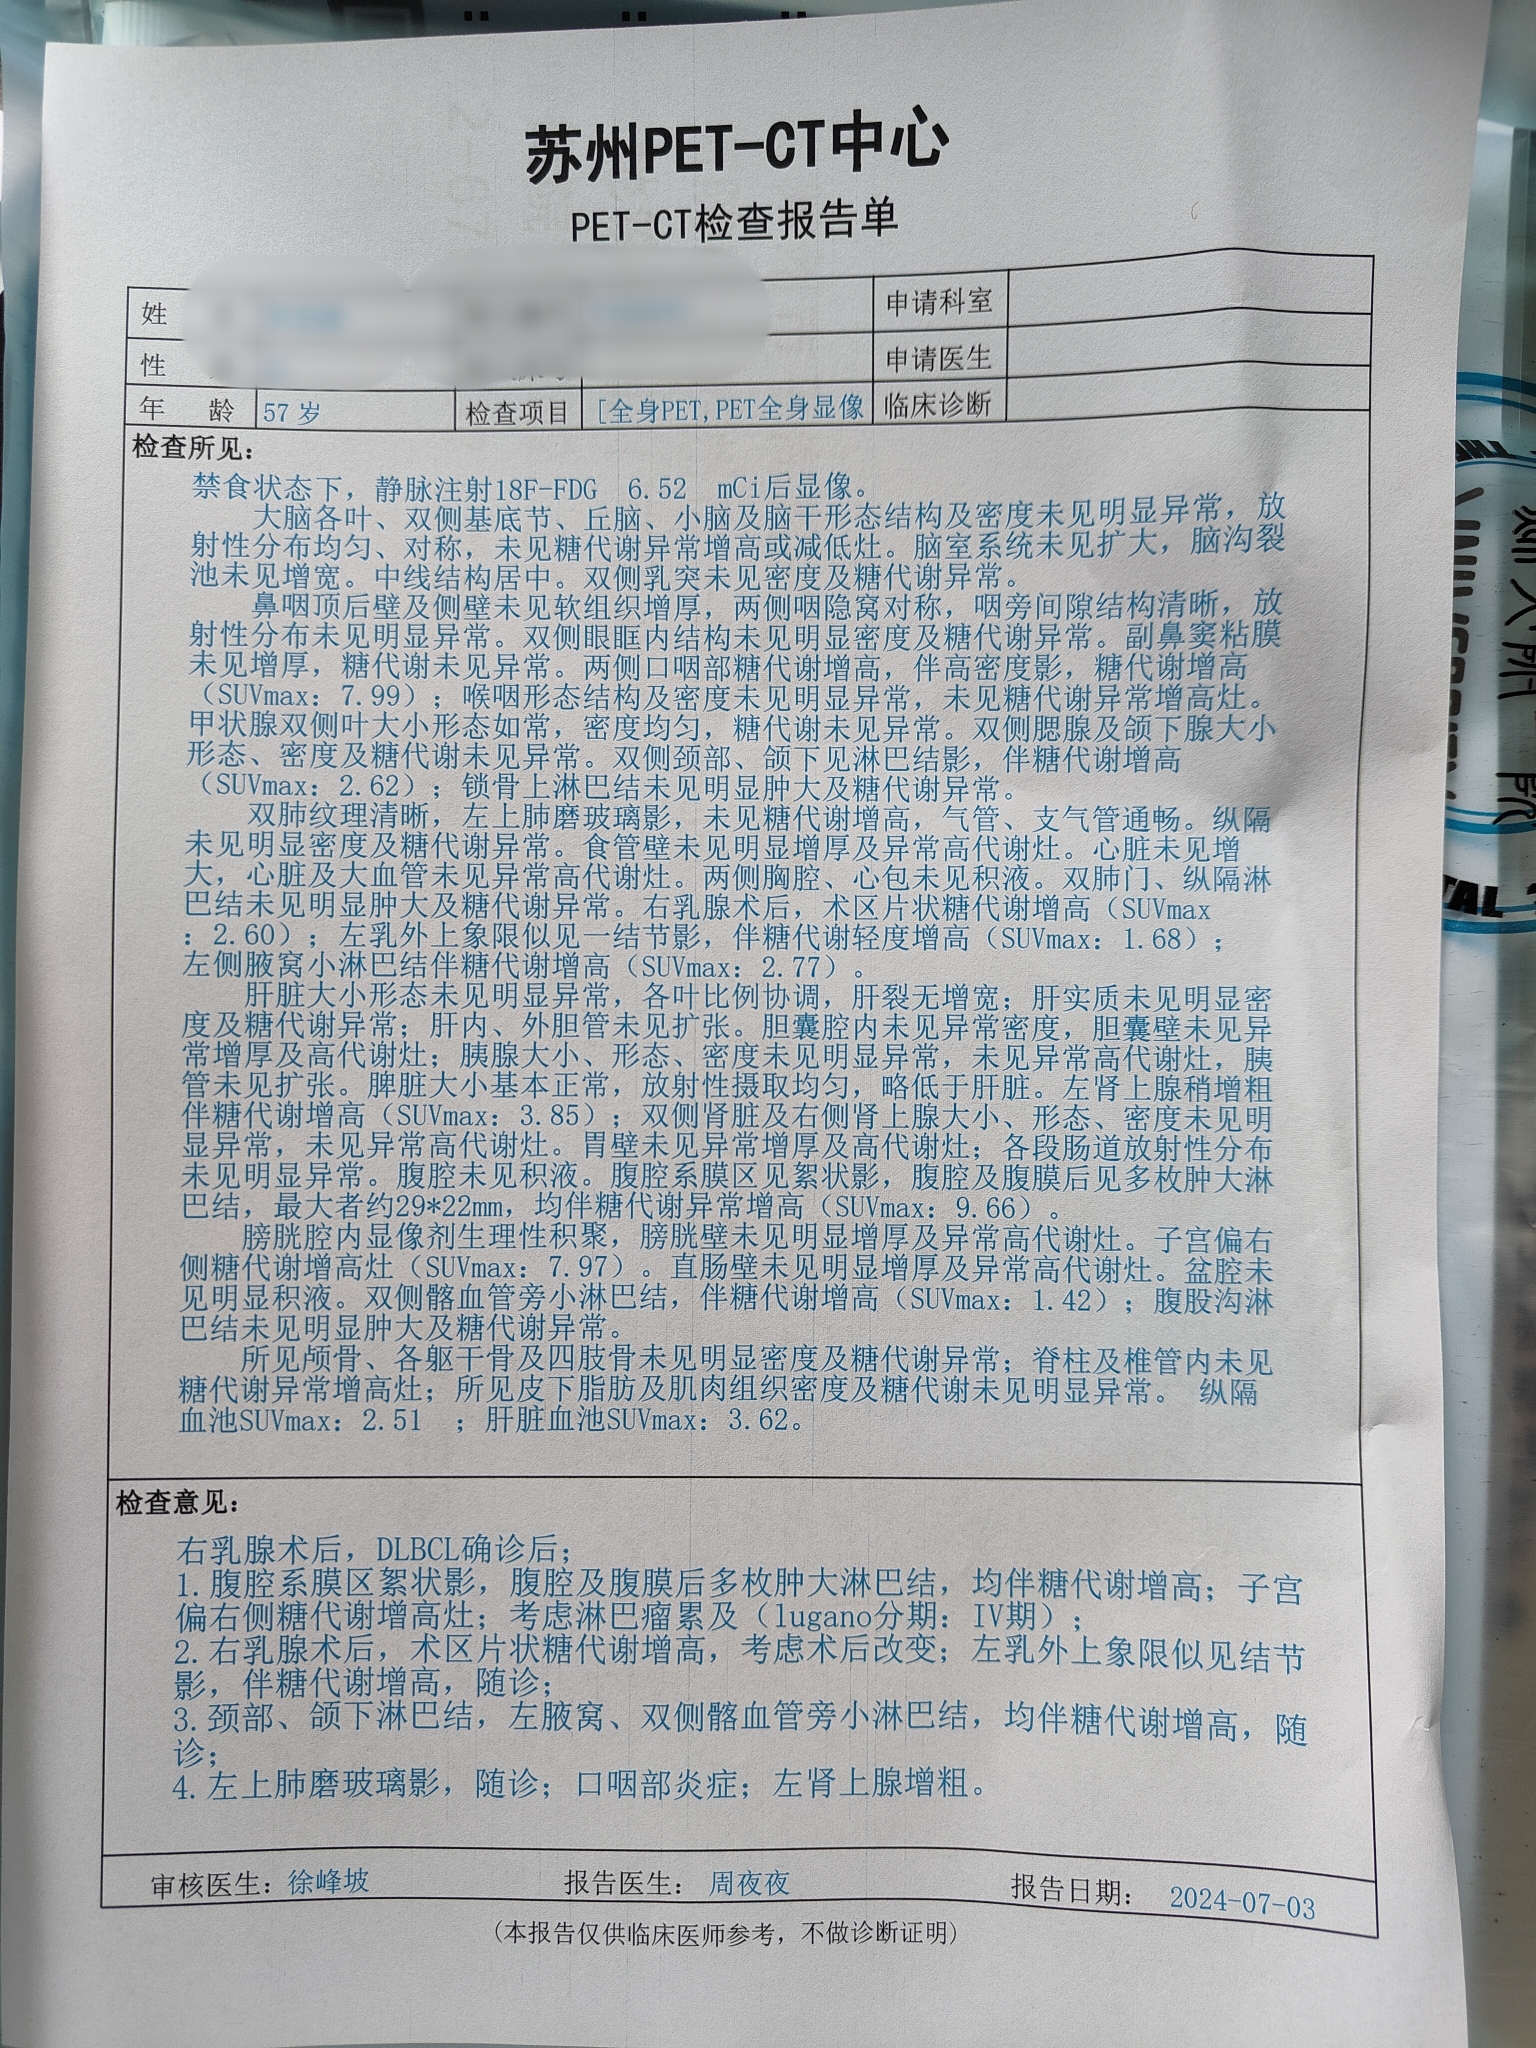 苏州PET-CT中心
PET-CT检查报告单
姓 申请科室
性 申请医生
年 龄 57 岁 检查项目 [全身PET,PET全身显像 临床诊断
检查所见:
禁食状态下，静脉注射18F-FDG 6.52 mCi后显像。
大脑各叶、双侧基底节、丘脑、小脑及脑干形态结构及密度未见明显异常，放
射性分布均匀、对称，未见糖代谢异常增高或减低灶。脑室系统未见扩大，脑沟裂
池未见增宽。中线结构居中。双侧乳突未见密度及糖代谢异常。
鼻咽顶后壁及侧壁未见软组织增厚，两侧咽隐窝对称，咽旁间隙结构清晰，放
射性分布未见明显异常。双侧眼眶内结构未见明显密度及糖代谢异常。副鼻窦粘膜
未见增厚，糖代谢未见异常。两侧口咽部糖代谢增高，伴高密度影，糖代谢增高
（SUVmax：7.99）；喉咽形态结构及密度未见明显异常，未见糖代谢异常增高灶。
甲状腺双侧叶大小形态如常，密度均匀，糖代谢未见异常。双侧腮腺及颌下腺大小
形态、密度及糖代谢未见异常。双侧颈部、颌下见淋巴结影，伴糖代谢增高
（SUVmax：2.62）；锁骨上淋巴结未见明显肿大及糖代谢异常。
双肺纹理清晰，左上肺磨玻璃影，未见糖代谢增高，气管、支气管通畅。纵隔
未见明显密度及糖代谢异常。食管壁未见明显增厚及异常高代谢灶。心脏未见增
大，心脏及大血管未见异常高代谢灶。两侧胸腔、心包未见积液。双肺门、纵隔淋
巴结未见明显肿大及糖代谢异常。右乳腺术后，术区片状糖代谢增高（SUVmax
：2.60）；左乳外上象限似见一结节影，伴糖代谢轻度增高（SUVmax：1.68）；
左侧腋窝小淋巴结伴糖代谢增高（SUVmax：2.77）。
肝脏大小形态未见明显异常，各叶比例协调，肝裂无增宽；肝实质未见明显密
度及糖代谢异常；肝内、外胆管未见扩张。胆囊腔内未见异常密度，胆囊壁未见异
常增厚及高代谢灶；胰腺大小、形态、密度未见明显异常，未见异常高代谢灶，胰
管未见扩张。脾脏大小基本正常，放射性摄取均匀，略低于肝脏。左肾上腺稍增粗
伴糖代谢增高（SUVmax：3.85）；双侧肾脏及右侧肾上腺大小、形态、密度未见明
显异常，未见异常高代谢灶。胃壁未见异常增厚及高代谢灶；各段肠道放射性分布
未见明显异常。腹腔未见积液。腹腔系膜区见絮状影，腹腔及腹膜后见多枚肿大淋
巴结，最大者约29*22mm，均伴糖代谢异常增高（SUVmax：9.66）。
膀胱腔内显像剂生理性积聚，膀胱壁未见明显增厚及异常高代谢灶。子宫偏右
侧糖代谢增高灶（SUVmax：7.97）。直肠壁未见明显增厚及异常高代谢灶。盆腔未
见明显积液。双侧髂血管旁小淋巴结，伴糖代谢增高（SUVmax：1.42）；腹股沟淋
巴结未见明显肿大及糖代谢异常。
所见颅骨、各躯干骨及四肢骨未见明显密度及糖代谢异常；脊柱及椎管内未见
糖代谢异常增高灶；所见皮下脂肪及肌肉组织密度及糖代谢未见明显异常。 纵隔
血池SUVmax：2.51 ；肝脏血池SUVmax：3.62。
检查意见:
右乳腺术后，DLBCL确诊后；
1.腹腔系膜区絮状影，腹腔及腹膜后多枚肿大淋巴结，均伴糖代谢增高；子宫
偏右侧糖代谢增高灶；考虑淋巴瘤累及（lugano分期：IV期）；
2.右乳腺术后，术区片状糖代谢增高，考虑术后改变；左乳外上象限似见结节
影，伴糖代谢增高，随诊；
3.颈部、颌下淋巴结，左腋窝、双侧髂血管旁小淋巴结，均伴糖代谢增高，随
诊；
4.左上肺磨玻璃影，随诊；口咽部炎症；左肾上腺增粗。
审核医生：徐峰坡 报告医生：周夜夜 报告日期：2024-07-03
(本报告仅供临床医师参考，不做诊断证明)